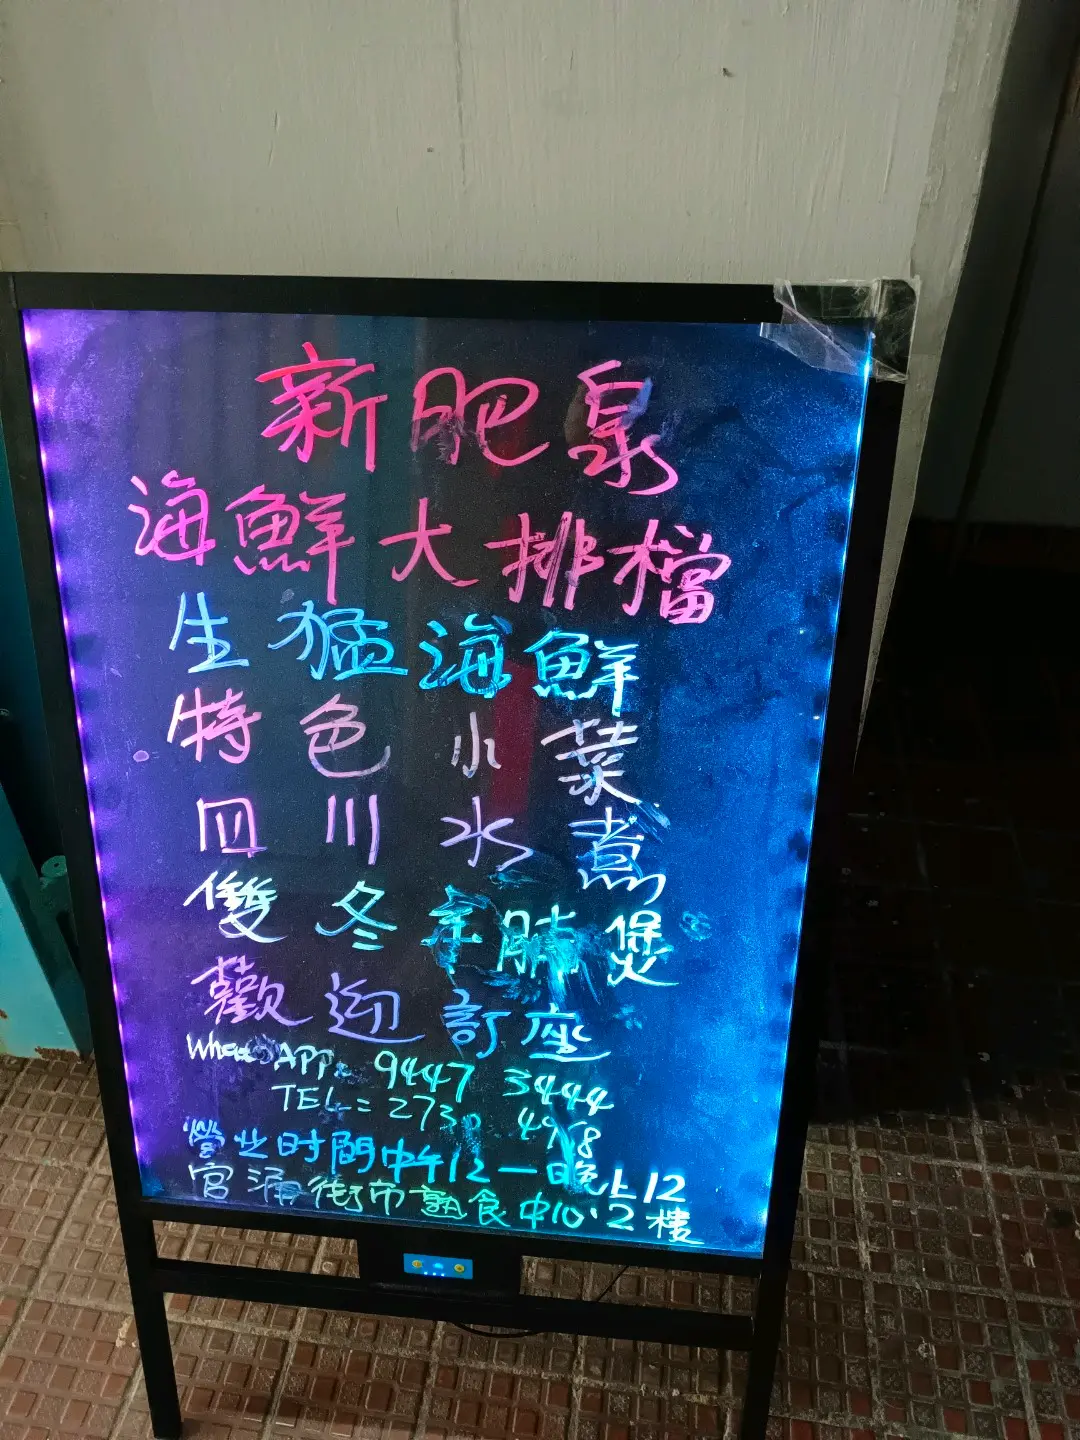 新肥泉
海鮮大排檔
生猛海鮮
特色小菜
四川水煮
雙冬羊腩煲
歡迎訂座
WhatsAPP: 9447 3444
TEL: 2730 4918
營业时間中午12一晚上12
官涌街市熟食中心2樓